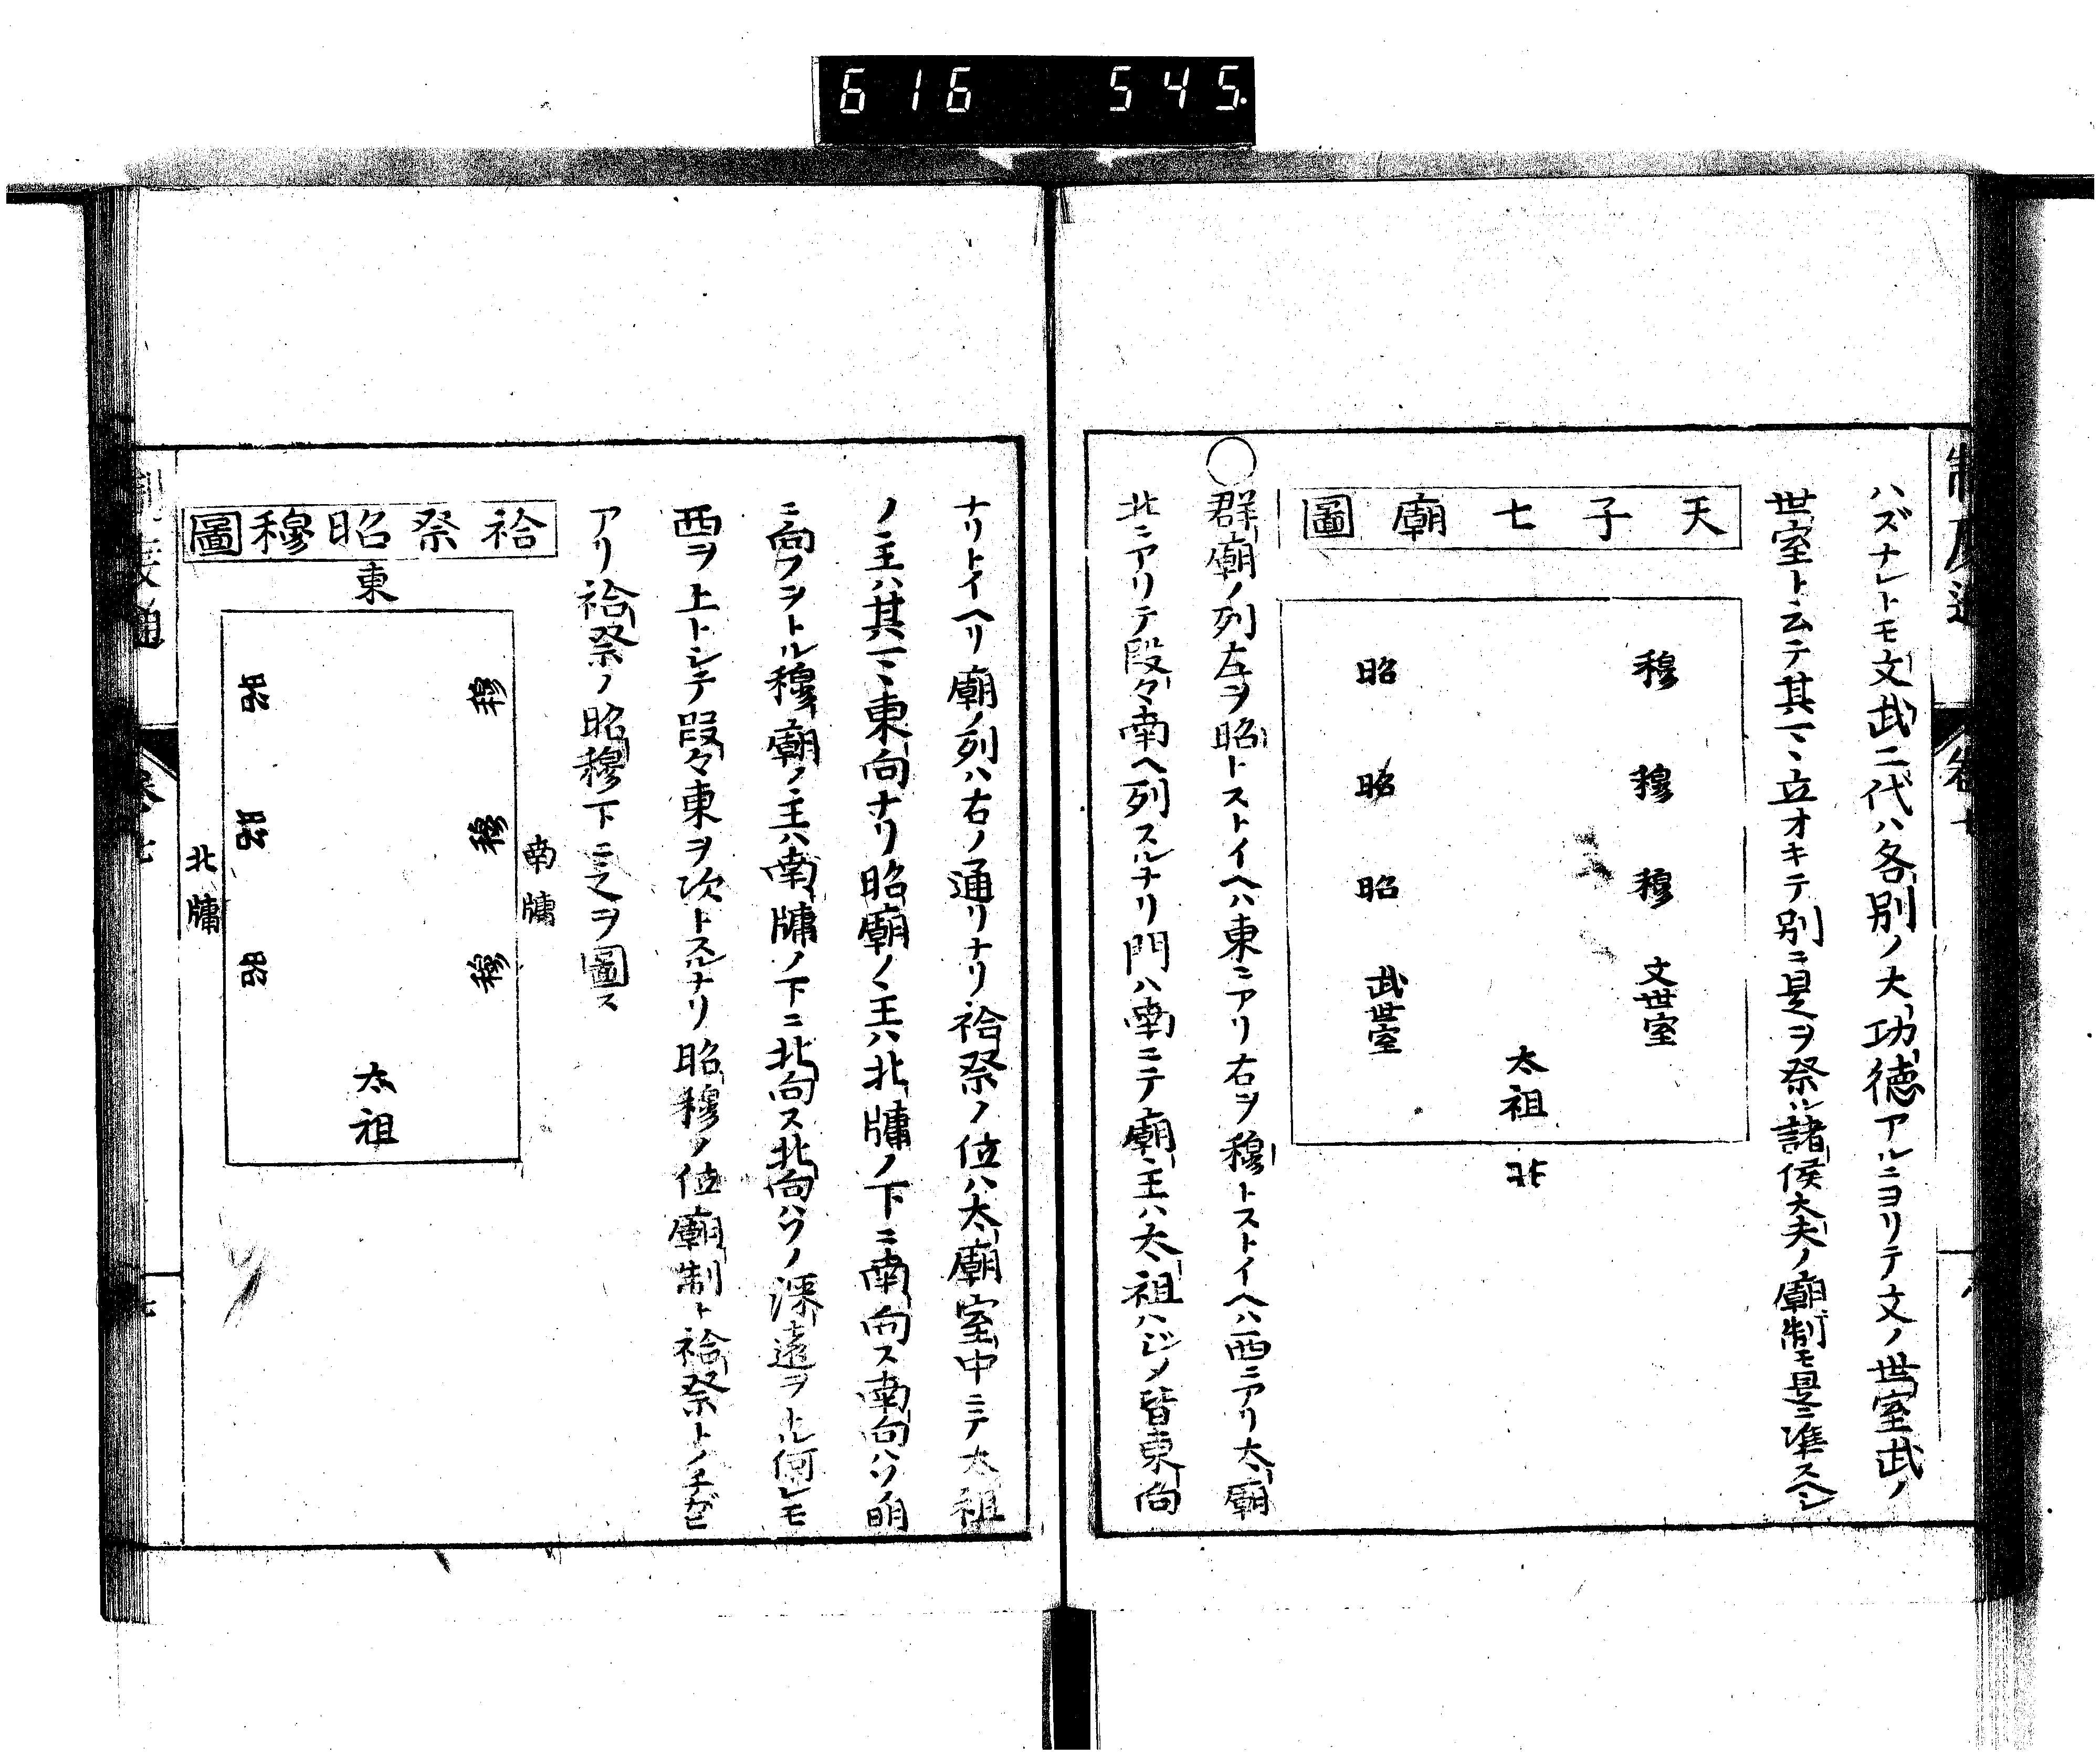 616 545
ハズナレトモ文武二代ハ各別ノ大功徳アルニヨリテ文ノ世室武ノ
世室ト云テ其マヽ立オキテ別ニ是ヲ祭ル諸侯大夫ノ廟制モ是ニ準スヘシ
天子七廟圖
穆 穆 穆 文世室
太祖
昭 昭 昭 武世室
北
○群廟ノ列左ヲ昭トストイヘハ東ニアリ右ヲ穆トストイヘハ西ニアリ太廟
北ニアリテ段々南ヘ列スルナリ門ハ南ニテ廟主ハ太祖ハジメ皆東向
ナリトイヘリ廟ノ列ハ右ノ通リナリ祫祭ノ位ハ太廟室中ニテ太祖
ノ主ハ其マヽ東向ナリ昭廟ノ主ハ北牗ノ下ニ南向ス南向ハソノ明
ニ向フヲトル穆廟ノ主ハ南牗ノ下ニ北向ス北向ハソノ深遠ヲトル何レモ
西ヲ上トシテ段々東ヲ次トスルナリ昭穆ノ位廟制ト祫祭トノチガヒ
アリ祫祭ノ昭穆下ニ之ヲ圖ス
祫祭昭穆圖
東
南牗
穆 穆 穆
太祖
昭 昭 昭
北牗